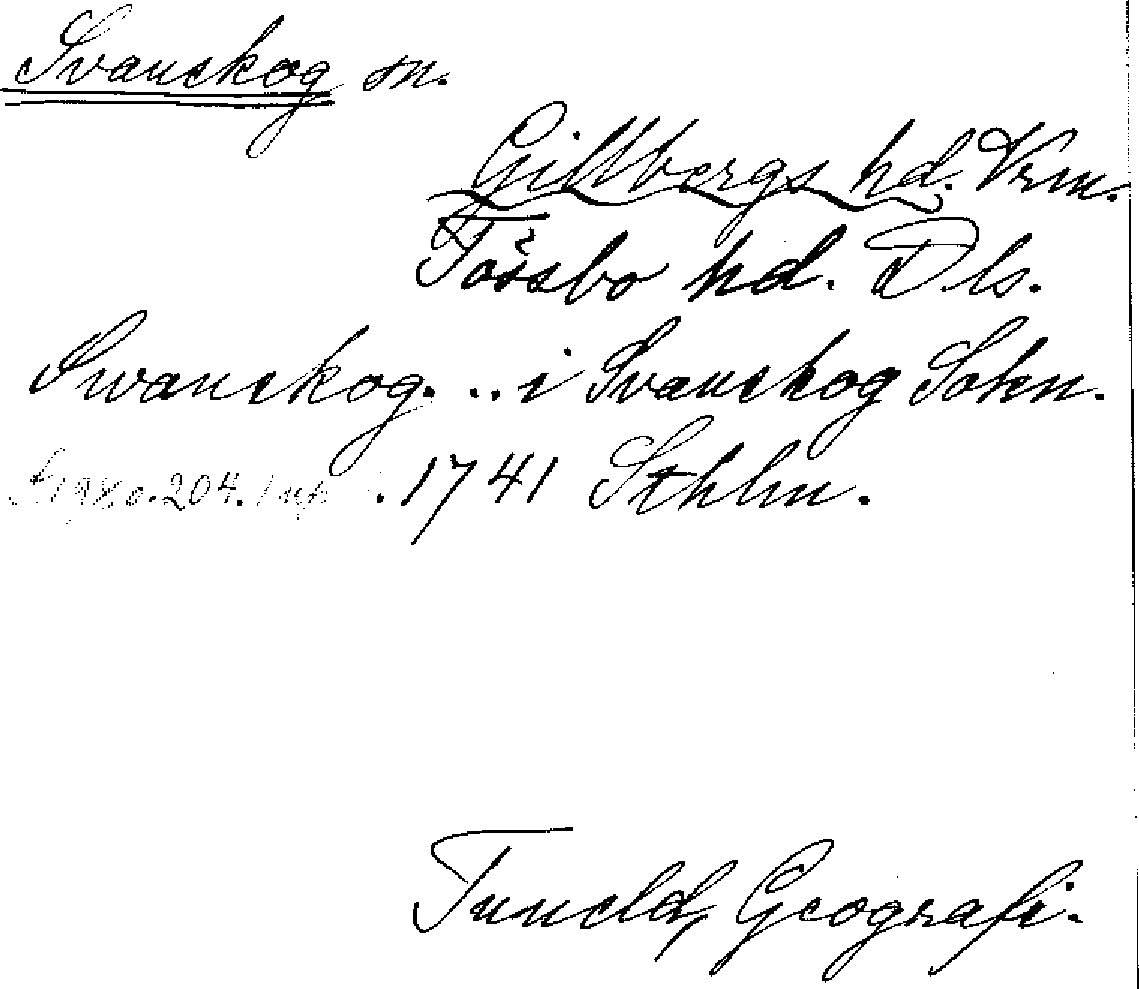 Svanskog sn.
Gillbergs hd. Vrm.
Tössbo hd. Dls.
Swanskog. .. i Svanskog Sokn.
204. 1 up . 1741 Sthlm.
Tuneld, Geografi.